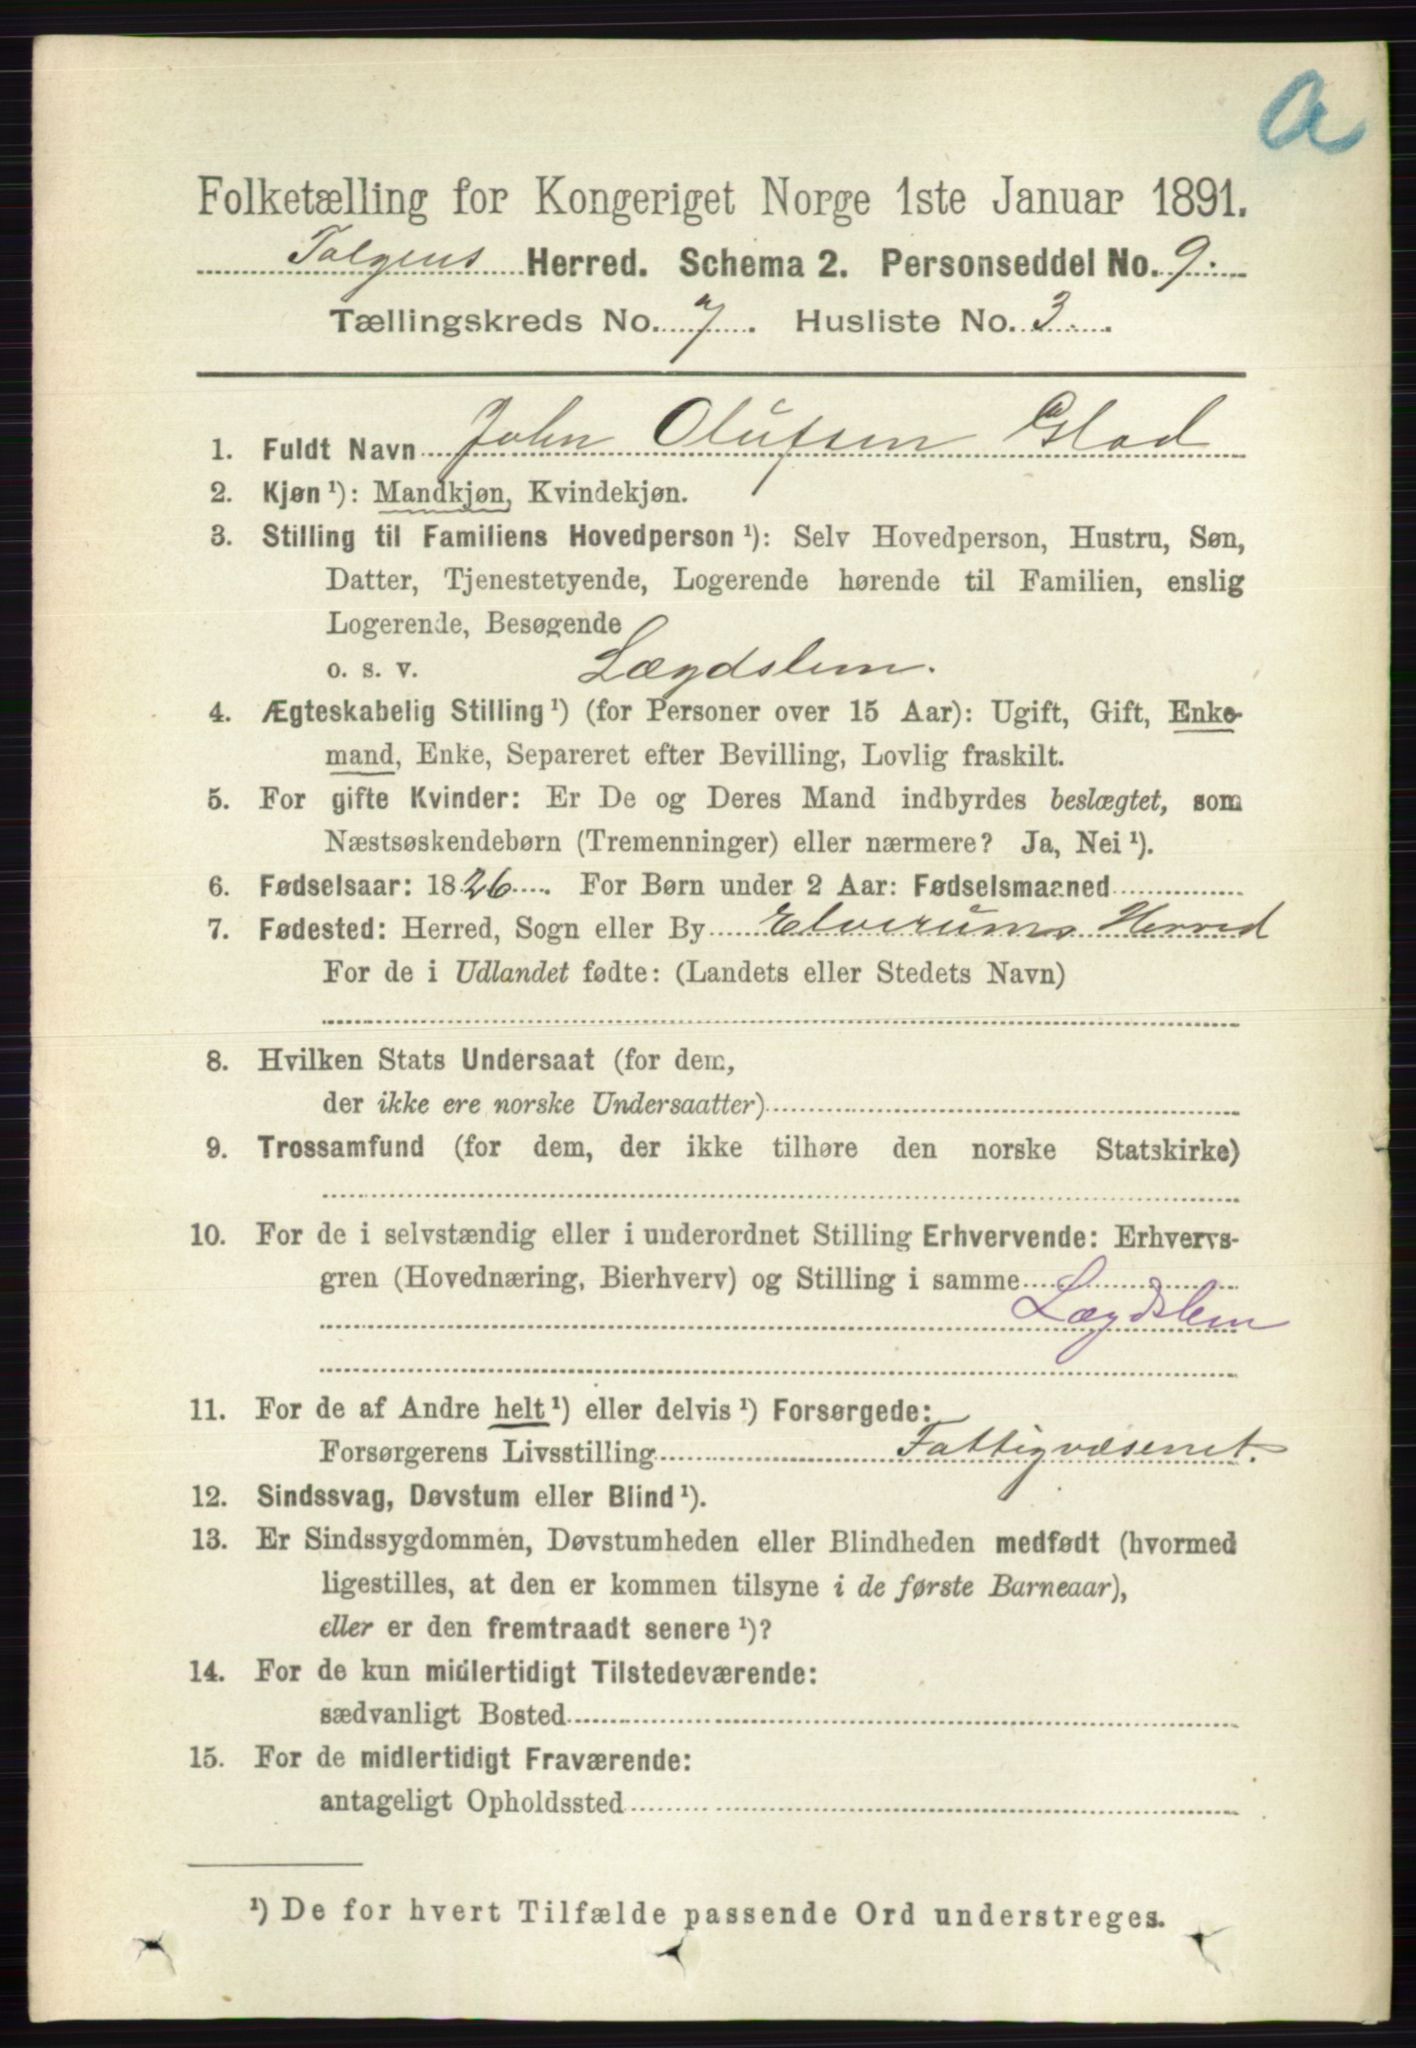 a
Folketælling for Kongeriget Norge 1ste Januar 1891.
Tolgens Herred. Schema 2. Personseddel No. 9.
Tællingskreds No. 7. Husliste No. 3.
1. Fuldt Navn John Olufsen Glad
2. Kjøn¹): Mandkjøn, Kvindekjøn.
3. Stilling til Familiens Hovedperson¹): Selv Hovedperson, Hustru, Søn,
Datter, Tjenestetyende, Logerende hørende til Familien, enslig
Logerende, Besøgende
o. s. v. Lægdslem.
4. Ægteskabelig Stilling¹) (for Personer over 15 Aar): Ugift, Gift, Enke-
mand, Enke, Separeret efter Bevilling, Lovlig fraskilt.
5. For gifte Kvinder: Er De og Deres Mand indbyrdes beslægtet, som
Næstsøskendebørn (Tremenninger) eller nærmere? Ja, Nei¹).
6. Fødselsaar: 1826. For Børn under 2 Aar: Fødselsmaaned
7. Fødested: Herred, Sogn eller By Elverums Herred
For de i Udlandet fødte: (Landets eller Stedets Navn)
8. Hvilken Stats Undersaat (for dem,
der ikke ere norske Undersaatter)
9. Trossamfund (for dem, der ikke tilhøre den norske Statskirke)
10. For de i selvstændig eller i underordnet Stilling Erhvervende: Erhvervs-
gren (Hovednæring, Bierhverv) og Stilling i samme
Lægdslem
11. For de af Andre helt¹) eller delvis¹) Forsørgede:
Forsørgerens Livsstilling Fattigvæsenet.
12. Sindssvag, Døvstum eller Blind¹).
13. Er Sindssygdommen, Døvstumheden eller Blindheden medfødt (hvormed
ligestilles, at den er kommen tilsyne i de første Barneaar),
eller er den fremtraadt senere¹)?
14. For de kun midlertidigt Tilstedeværende:
sædvanligt Bosted
15. For de midlertidigt Fraværende:
antageligt Opholdssted
¹) De for hvert Tilfælde passende Ord understreges.